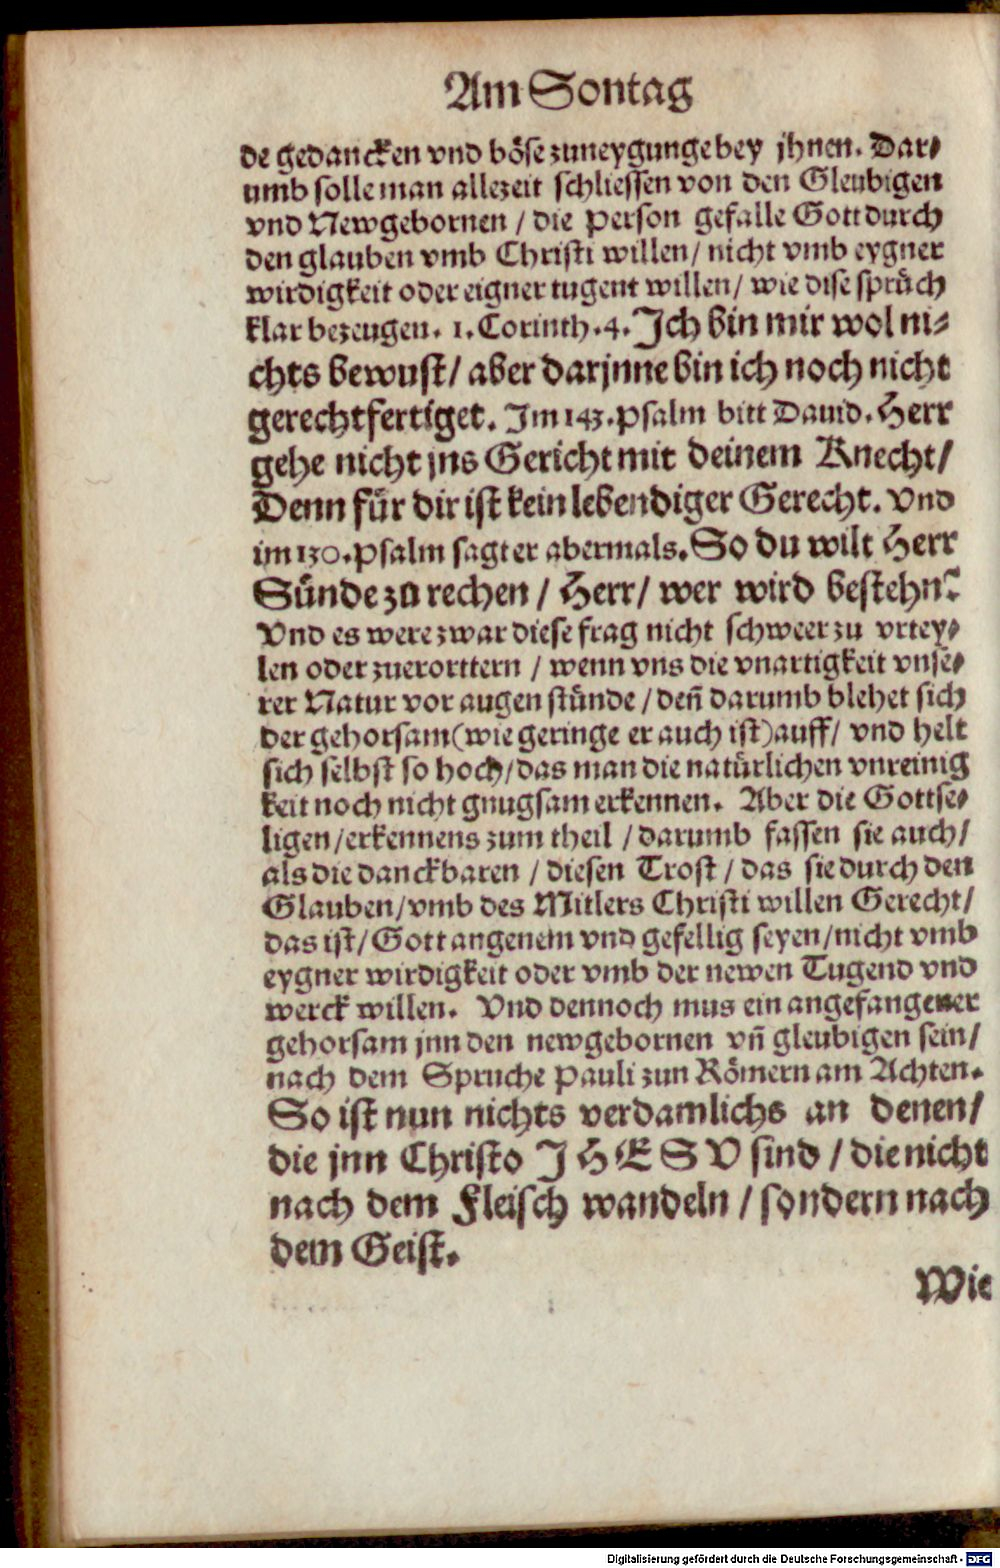 Am Sontag
de gedancken vnd böse zuneygunge bey jhnen. Dar-
umb solle man allezeit schliessen von den Gleubigen
vnd Newgebornen / die Person gefalle Gott durch
den glauben vmb Christi willen / nicht vmb eygner
wirdigkeit oder eigner tugent willen / wie dise sprüch
klar bezeugen. 1. Corinth. 4. Ich bin mir wol ni-
chts bewust / aber darjnne bin ich noch nicht
gerechtfertiget. Im 143. Psalm bitt Dauid. Herr
gehe nicht jns Gericht mit deinem Knecht /
Denn für dir ist kein lebendiger Gerecht. Vnd
im 130. Psalm sagt er abermals. So du wilt Herr
Sünde zu rechen / Herr / wer wird bestehn?
Vnd es were zwar diese frag nicht schweer zu vrtey-
len oder zuerorttern / wenn vns die vnartigkeit vnse-
rer Natur vor augen stünde / deñ darumb blehet sich
der gehorsam (wie geringe er auch ist) auff / vnd helt
sich selbst so hoch / das man die natürlichen vnreinig
keit noch nicht gnugsam erkennen. Aber die Gottse-
ligen / erkennens zum theil / darumb fassen sie auch /
als die danckbaren / diesen Trost / das sie durch den
Glauben / vmb des Mitlers Christi willen Gerecht /
das ist / Gott angenem vnd gefellig seyen / nicht vmb
eygner wirdigkeit oder vmb der newen Tugend vnd
werck willen. Vnd dennoch mus ein angefangener
gehorsam jnn den newgebornen vñ gleubigen sein /
nach dem Spruche Pauli zun Römern am Achten.
So ist nun nichts verdamlichs an denen /
die jnn Christo JHESV sind / die nicht
nach dem Fleisch wandeln / sondern nach
dem Geist.
Wie
Digitalisierung gefördert durch die Deutsche Forschungsgemeinschaft - DFG